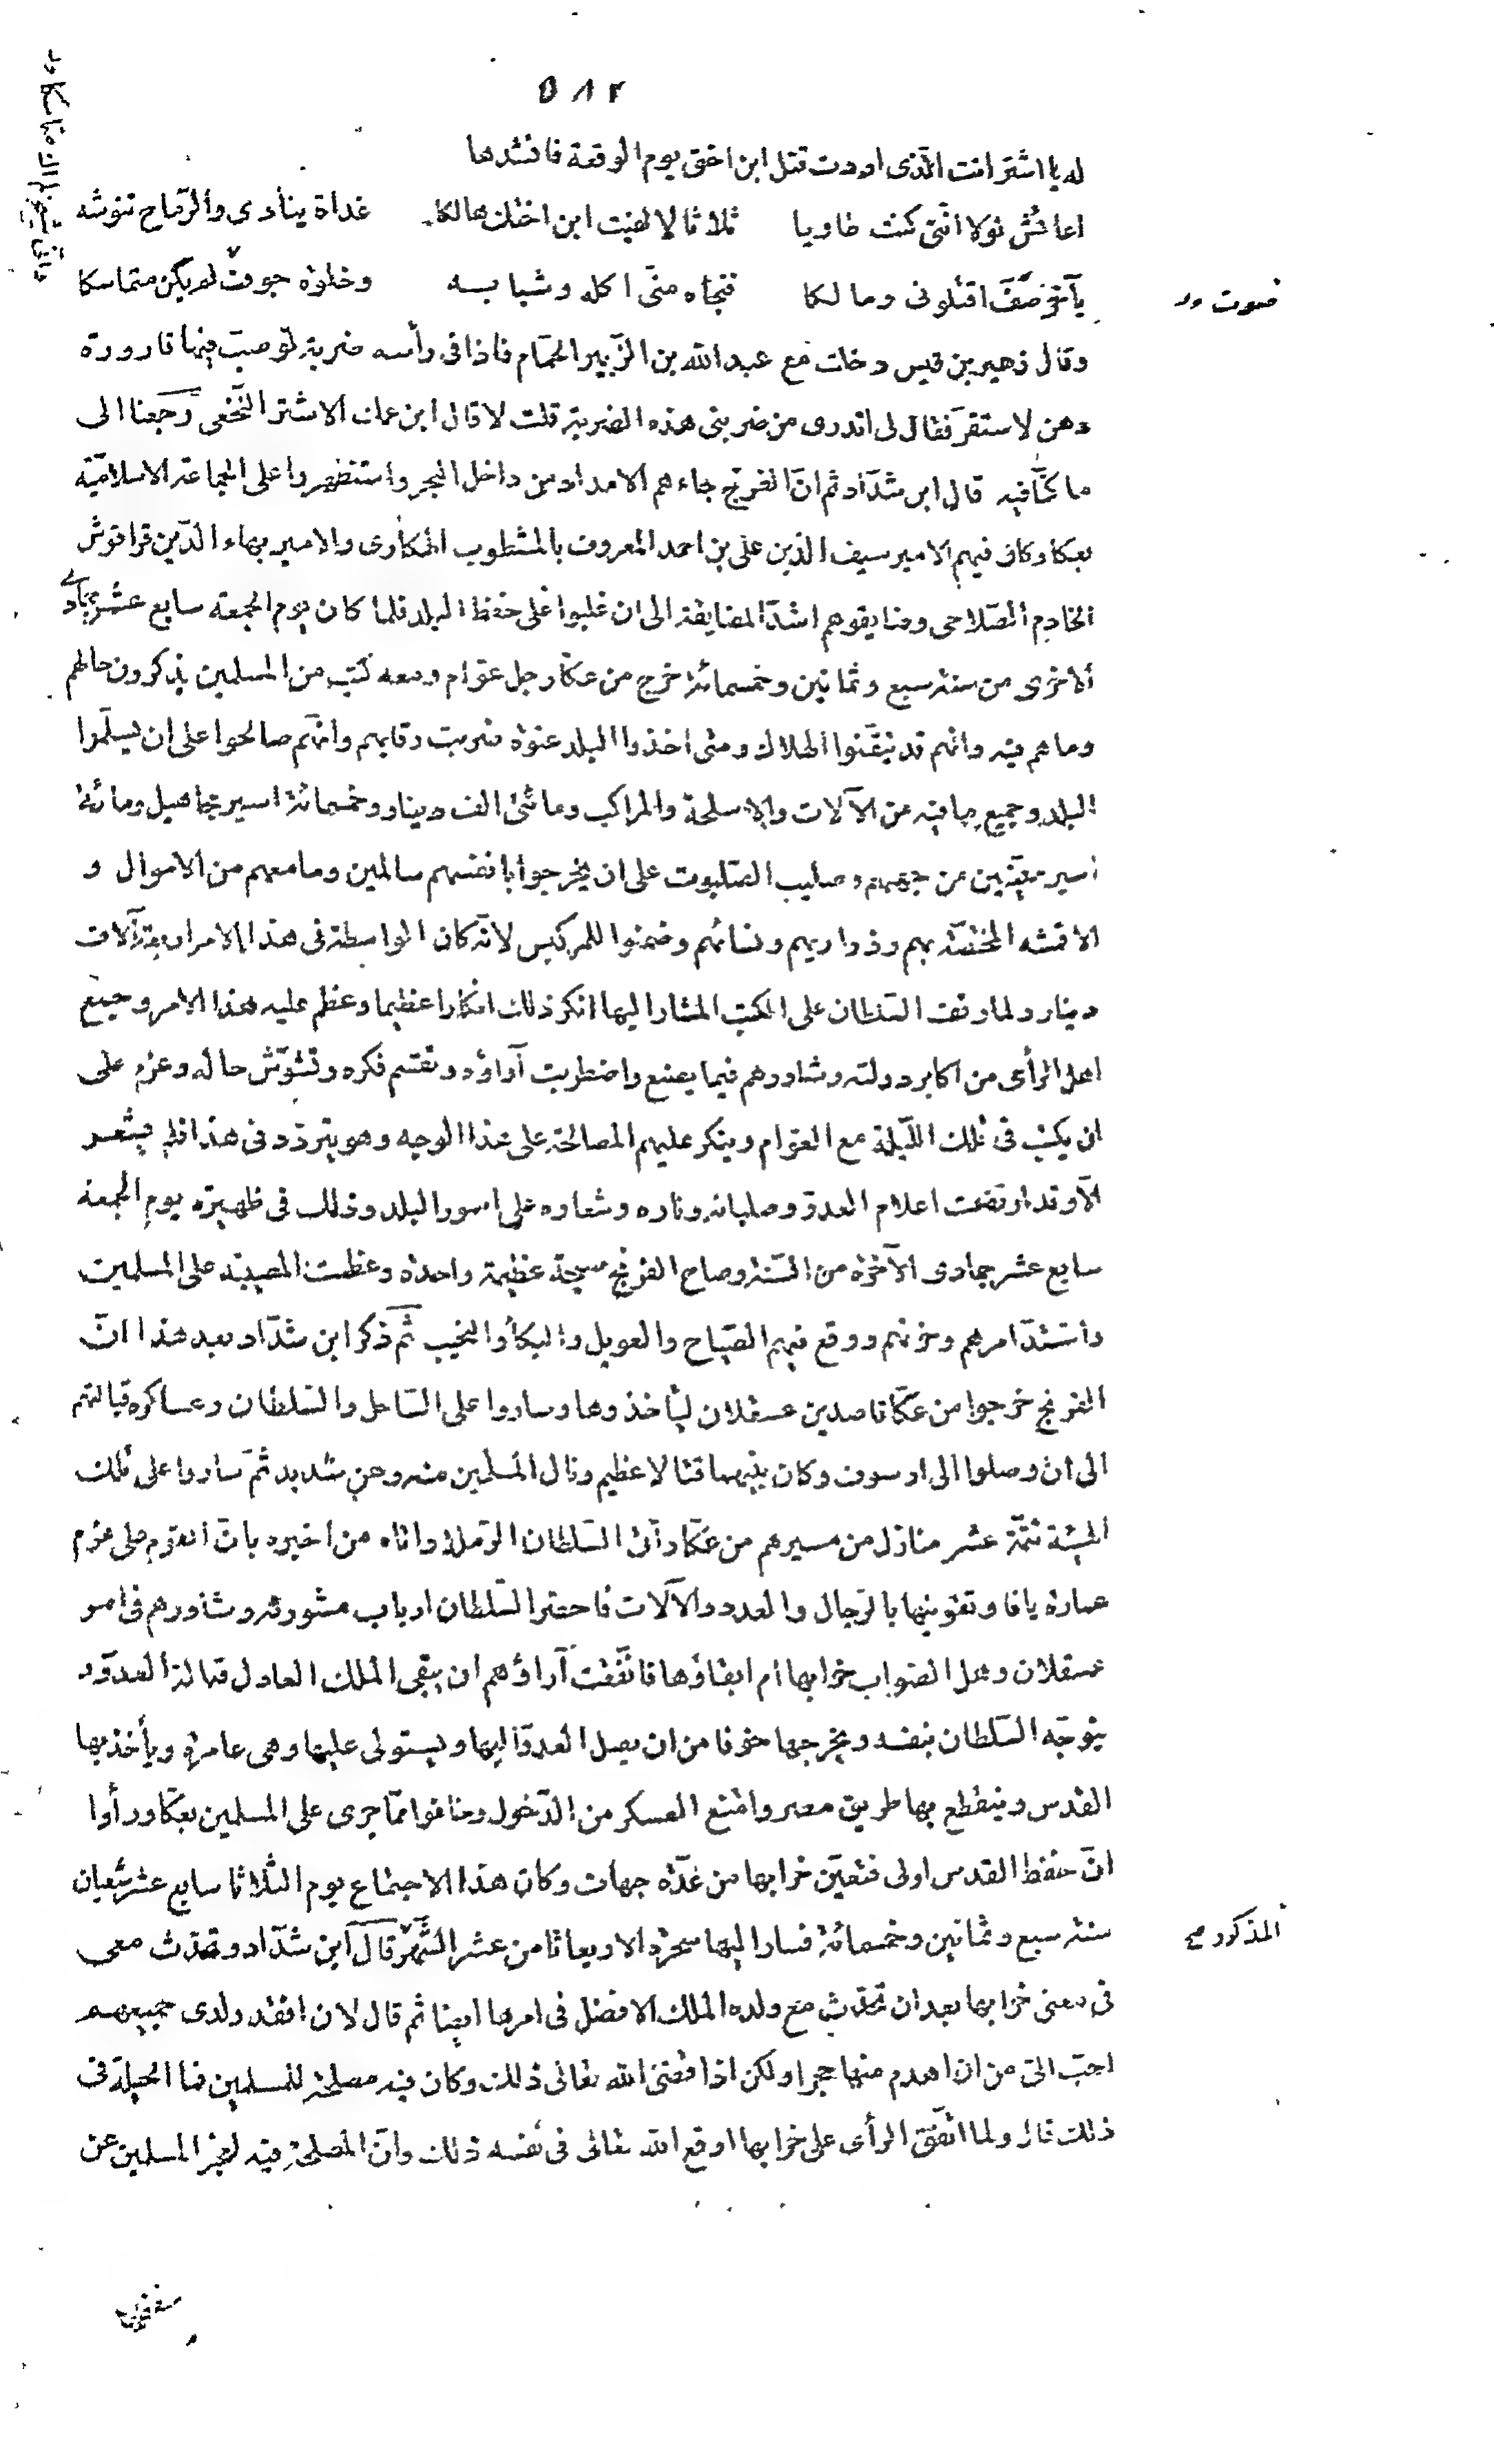 ٥٨٢
له يا اشتر انت الذى اردت قتل ابن اختى يوم الوقعة فانشدها
اعائش لولا انّنى كنت طاويا ثلاثا لالفيت ابن اختك هالكا غداة ينادى والرّماح تنوشه
بآخر اقتلونى ومالكا فنجّاه منّى اكله وشبابه وخلوة جوف لم يكن متماسكا
وقال زهير بن قيس دخلت مع عبد الله بن الزّبير الحمّام فاذا فى رأسه ضربة لو صبّ فيها قارورة
دهن لاستقرّ فقال لى اتدرى من ضربنى هذه الضربة قلت لا قال ابن عمك الاشتر النّخعى رجعنا الى
ما كنّا فيه قال ابن شدّاد ثم انّ الفرنج جاءهم الامداد من داخل البحر واستظهروا على الجماعة الاسلاميّة
بعكا وكان فيهم الامير سيف الدّين على بن احمد المعروف بالمشطوب الهكارى والامير بهاء الدّين قراقوش
الخادم الصّلاحى وضايقوهم اشدّ المضايقة الى ان غلبوا على حفظ البلد فلما كان يوم الجمعة سابع عشر جمادى
الاخرى من سنة سبع وثمانين وخمسمائة خرج من عكّا رجل عوّام ومعه كتب من المسلمين يذكرون حالهم
وما هم فيه وانهم قد تيقّنوا الهلاك ومتى اخذوا البلد عنوة ضربت رقابهم وانّهم صالحوا على ان يسلّموا
البلد وجميع ما فيه من الآلات والاسلحة والمراكب ومائتى الف دينار وخمسمائة اسير مجاهيل ومائة
اسير معيّنين من جهتهم وصليب الصّلبوت على ان يخرجوا بانفسهم سالمين وما معهم من الاموال و
الاقمشه المختصّة بهم وذراريهم ونسائهم وضمنوا للمركيس لانّه كان الواسطة فى هذا الامر اربعة آلاف
دينار ولما وقف السّلطان على الكتب المشار اليها انكر ذلك انكارا عظيما وعظم عليه هذا الامر وجمع
اهل الرأى من اكابر دولته وشاورهم فيما يصنع واضطربت آراؤه وتقسم فكره وتشوّش حاله وعزم على
ان يكتب فى تلك اللّيلة مع العوّام وينكر عليهم المصالحة على هذا الوجه وهو يتردّد فى هذا فلم يشعر
الّا وقد ارتفعت اعلام العدوّ وصلبانه وناره وشعاره على اسور البلد وذلك فى ظهيرة يوم الجمعة
سابع عشر جمادى الآخرة من السّنة وصاح الفرنج صيحة عظيمة واحدة وعظمت المصيبة على المسلمين
واشتدّ امرهم وحزنهم ووقع فيهم الصّياح والعويل والبكاء والنحيب ثمّ ذكر ابن شدّاد بعد هذا انّ
الفرنج خرجوا من عكّا قاصدين عسقلان ليأخذوها وساروا على السّاحل والسّلطان وعساكره قبالتهم
الى ان وصلوا الى ارسوف وكان بينهما قتالا عظيم ونال المسلمين منه وهن شديد ثمّ ساروا على تلك
الهيئة تتمّة عشر منازل من مسيرهم من عكّا وأتى السّلطان الرّملة واتاه من اخبره بانّ القوم على عزم
عمارة يافا وتقويتها بالرّجال والعدد والآلات فاحضر السّلطان ارباب مشورته وشاورهم فى امر
عسقلان وهل الصّواب خرابها ام ابقاؤها فاتّفقت آراؤهم ان يبقى الملك العادل قبالة العدوّ و
يتوجّه السّلطان بنفسه ويخربها خوفا من ان يصل العدوّ اليها ويستولى عليها وهى عامرة ويأخذ بها
القدس وينقطع بها طريق مصر وامتنع العسكر من الدّخول وخافوا ممّا جرى على المسلمين بعكّا ورأوا
انّ حفظ القدس اولى فتعيّن خرابها من عدّة جهات وكان هذا الاجتماع يوم الثّلاثا سابع عشر شعبان
سنة سبع وثمانين وخمسمائة فسار اليها سحرة الاربعا ثامن عشر الشّهر قال ابن شدّاد وتحدّث معى
المذكور صح
فى معنى خرابها بعد ان تحدّث مع ولده الملك الافضل فى امرها ايضا ثم قال لان افقد ولدى جميعهم
احبّ الىّ من ان اهدم منها حجرا ولكن اذا قضى الله تعالى ذلك وكان فيه مصلحة للمسلمين فما الحيلة فى
ذلك قال ولما اتّفق الرأى على خرابها اوقع الله تعالى فى نفسه ذلك وانّ المصلحة فيه لعجز المسلمين عن